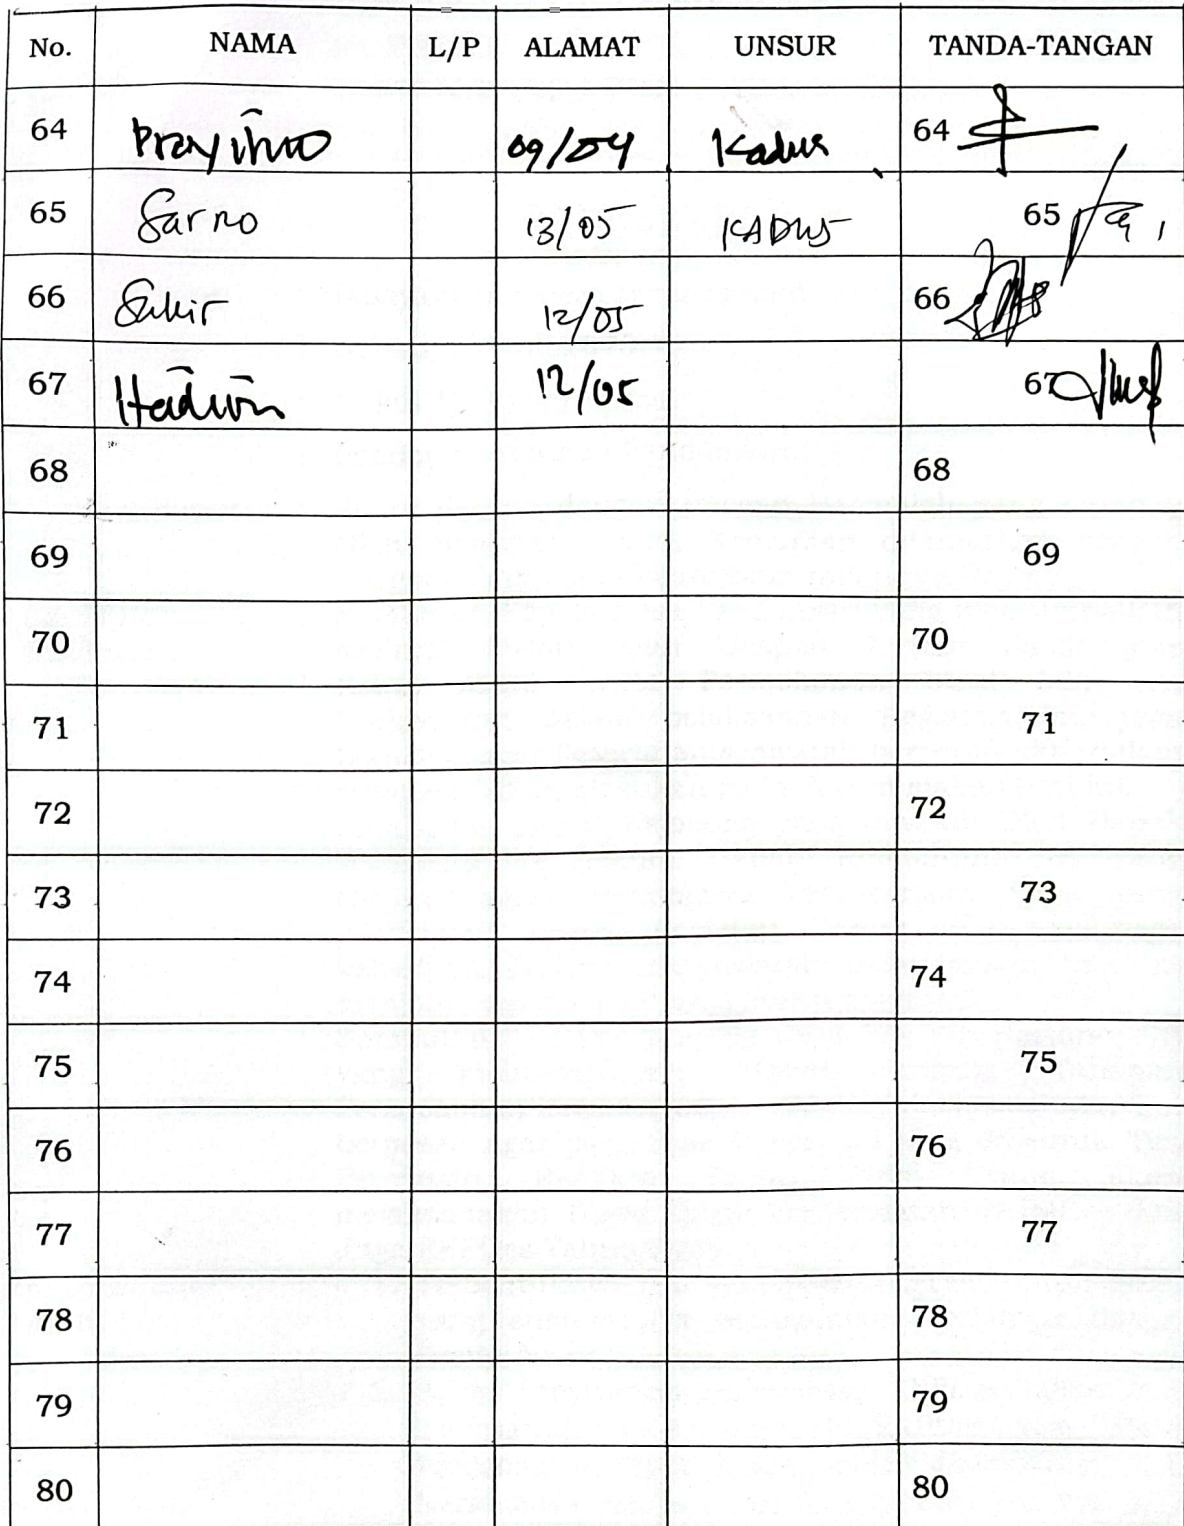 No. NAMA L/P ALAMAT UNSUR TANDA-TANGAN
64 Prayitno 09/04 Kadus 64
65 Sarno 13/05 KADUS 65
66 12/05 66
67 12/05 67
68 68
69 69
70 70
71 71
72 72
73 73
74 74
75 75
76 76
77 77
78 78
79 79
80 80